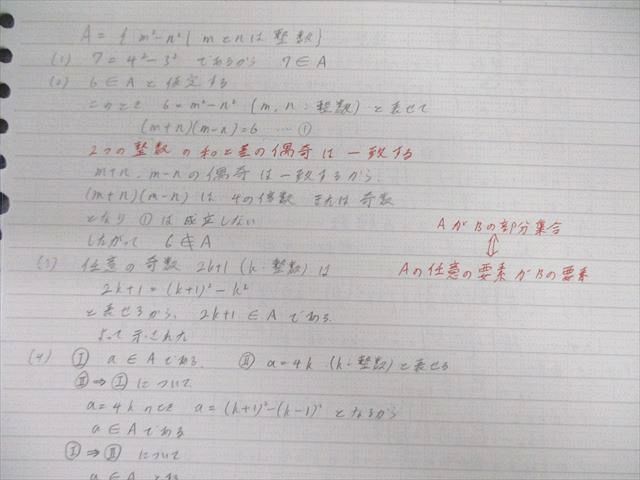 A = { m²-n² | mとnは整数}
(1) 7 = 4²-3² であるから 7∈A
(2) 6∈Aと仮定する
このとき 6 = m²-n² (m, n : 整数) と表せて
(m+n)(m-n)=6 …①
2つの整数の和と差の偶奇は一致する
m+n, m-nの偶奇は一致するから
(m+n)(m-n) は 4の倍数 または 奇数
となり ①は成立しない
したがって 6∉A
AがBの部分集合
⇕
Aの任意の要素がBの要素
(3) 任意の奇数 2k+1 (k : 整数) は
2k+1 = (k+1)²-k²
と表せるから, 2k+1 ∈ A である
よって示された
(4) Ⓘ a∈Aである Ⓘ︎Ⓘ a=4k (k : 整数) と表せる
Ⅱ⇒Ⅰ について
a=4kのとき a=(k+1)²-(k-1)² となるから
a∈Aである
Ⅰ⇒Ⅱ について
a∈Aである